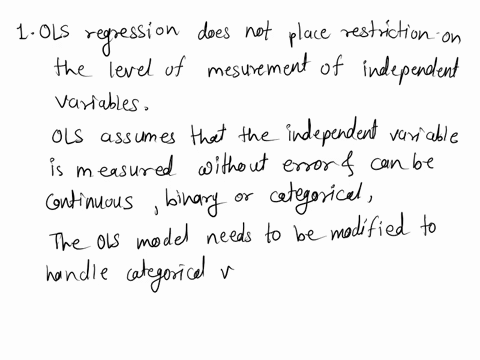 1. OLS regression does not place restriction on
the level of mesurement of independent
variables.
OLS assumes that the independent variable
is measured without error & can be
continuous, binary or categorical,
The OLS model needs to be modified to
handle categorical v